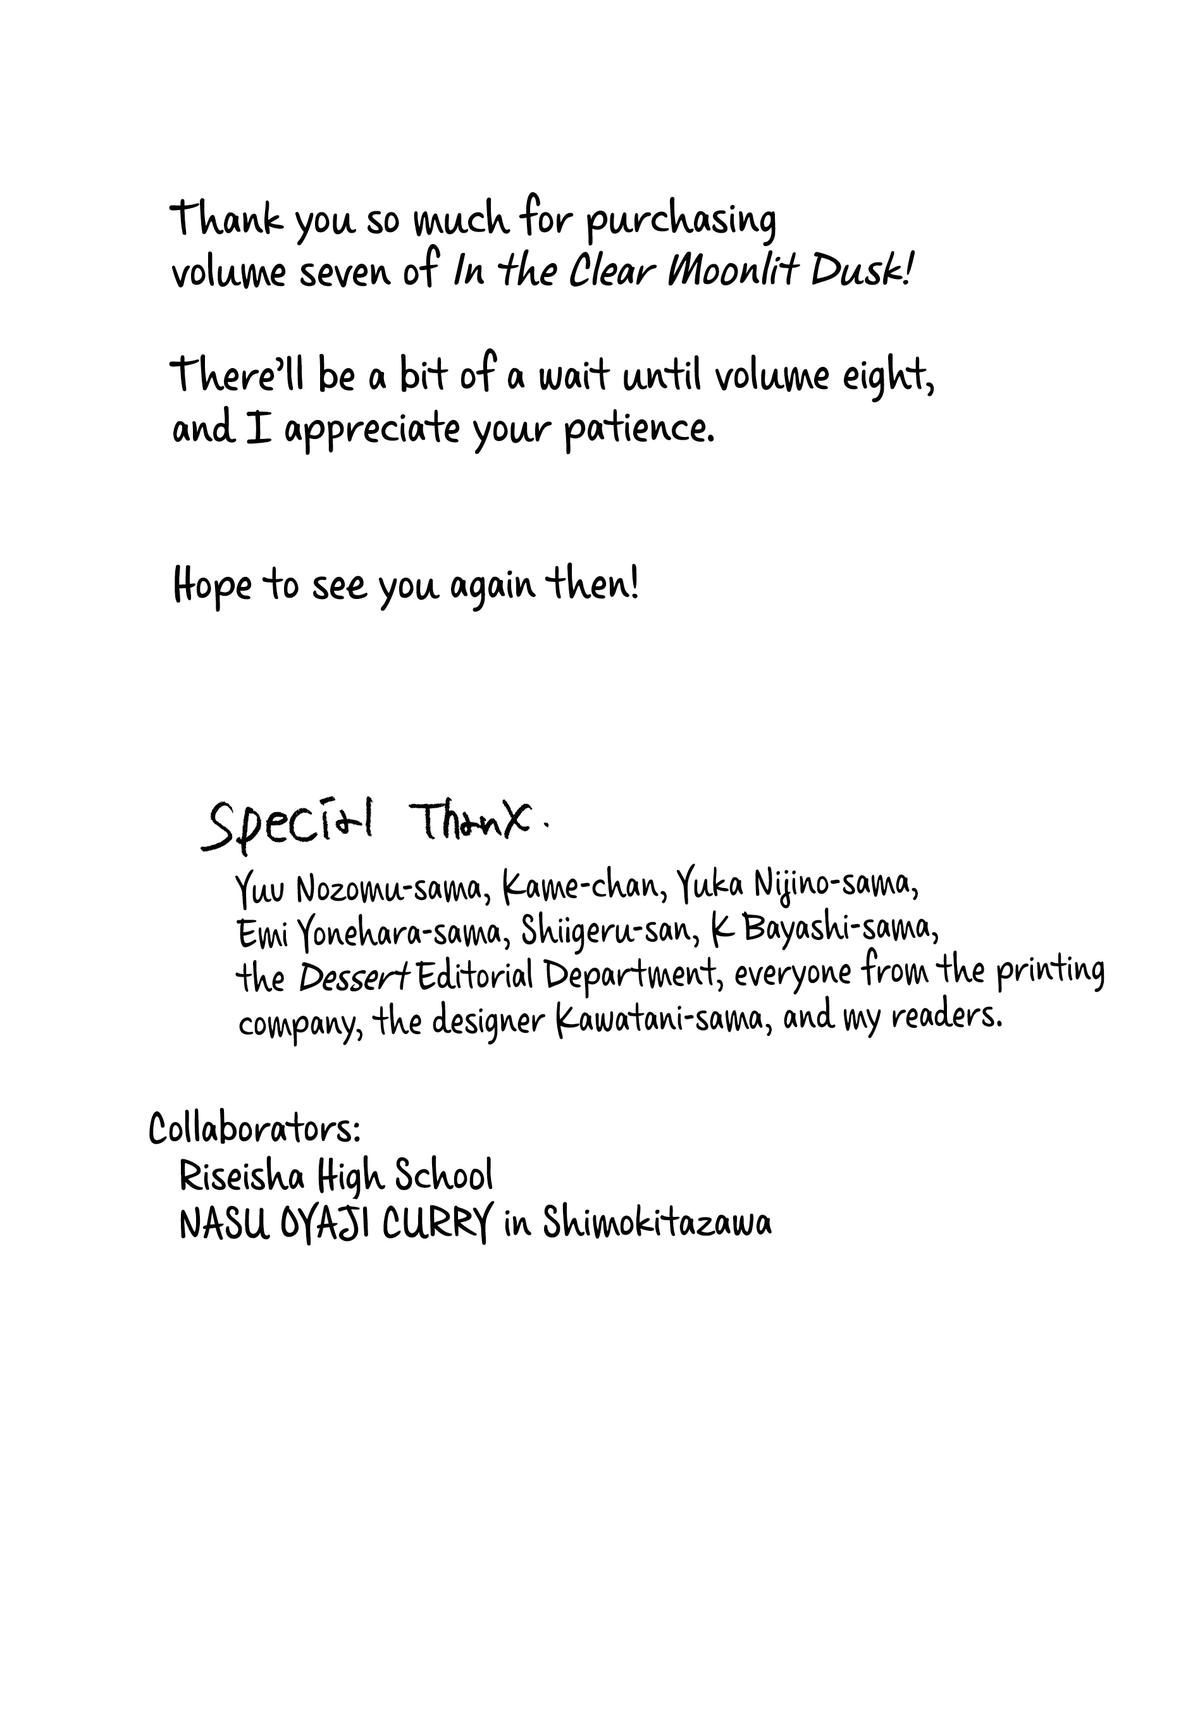 Thank you so much for purchasing
volume seven of In the Clear Moonlit Dusk!
There'll be a bit of a wait until volume eight,
and I appreciate your patience.
Hope to see you again then!
Special Thanx.
Yuu Nozomu-sama, Kame-chan, Yuka Nijino-sama,
Emi Yonehara-sama, Shiigeru-san, K Bayashi-sama,
the Dessert Editorial Department, everyone from the printing
company, the designer Kawatani-sama, and my readers.
Collaborators:
Riseisha High School
NASU OYAJI CURRY in Shimokitazawa